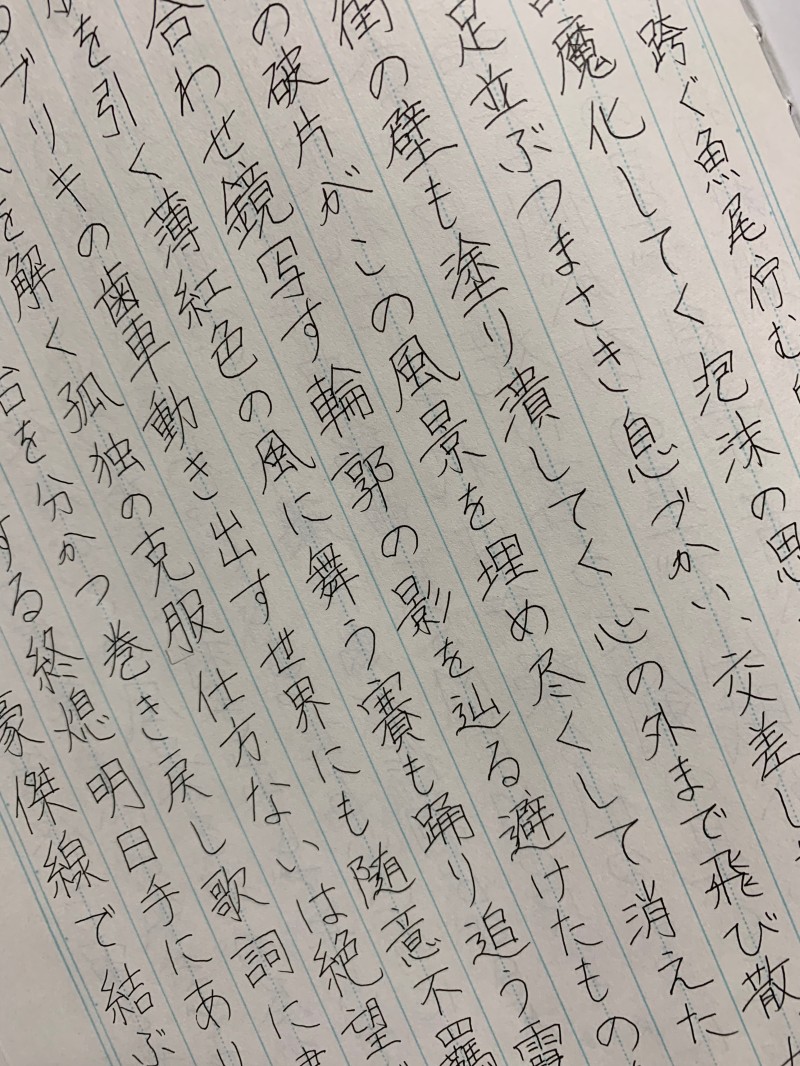 跨ぐ魚尾佇む
魔化してく泡沫の思
足並ぶつまさき息づかい、交差し
街の壁も塗り潰してく心の外まで飛び散
の破片がこの風景を埋め尽くして消えた
合わせ鏡写す輪郭の影を辿る避けたもの
を引く薄紅色の風に舞う賽も踊り追う
ブリキの歯車動き出す世界にも随意不羈
を解く孤独の克服」仕方ないは絶望
台を分かつ巻き戻し歌詞に
する終熄明日手にあり
豪傑線で結ぶ